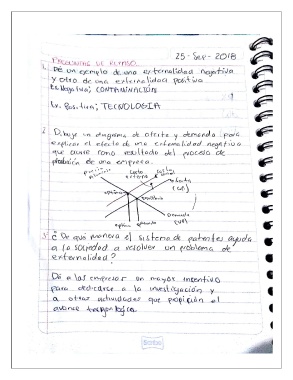 25-Sep-2018
PREGUNTAS DE REPASO.
1. Dé un ejemplo de una externalidad negativa
y otro de una externalidad positiva
Ex. Negativa; CONTAMINACIÓN
Ex. Positiva; TECNOLOGIA
2. Dibuje un diagrama de oferta y demanda para
explicar el efecto de una externalidad negativa
que ocurre como resultado del proceso de
producción de una empresa.
Costo
externo
óptimo
equilibrio
Demanda
3. ¿De qué manera el sistema de patentes ayuda
a la sociedad a resolver un problema de
externalidad?
Da a las empresas un mayor incentivo
para dedicarse a la investigación y
a otras actividades que propicien el
avance tecnológico.